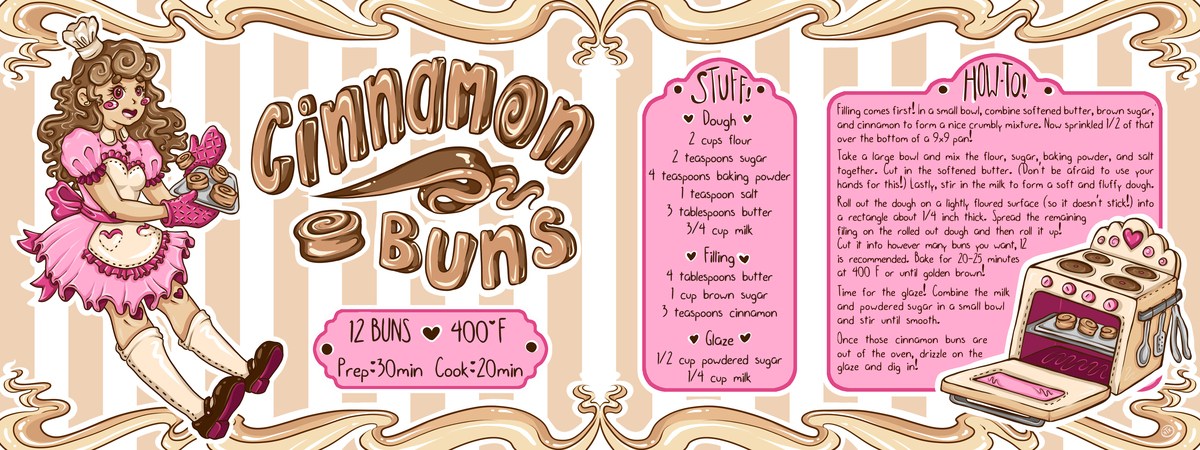 Cinnamon
Buns
12 BUNS ♥ 400°F
Prep:30min Cook:20min
STUFF!
♥ Dough ♥
2 cups flour
2 teaspoons sugar
4 teaspoons baking powder
1 teaspoon salt
3 tablespoons butter
3/4 cup milk
♥ Filling ♥
4 tablespoons butter
1 cup brown sugar
3 teaspoons cinnamon
♥ Glaze ♥
1/2 cup powdered sugar
1/4 cup milk
HOW-TO!
Filling comes first! In a small bowl, combine softened butter, brown sugar,
and cinnamon to form a nice crumbly mixture. Now sprinkled 1/2 of that
over the bottom of a 9x9 pan!
Take a large bowl and mix the flour, sugar, baking powder, and salt
together. Cut in the softened butter. (Don't be afraid to use your
hands for this!) Lastly, stir in the milk to form a soft and fluffy dough.
Roll out the dough on a lightly floured surface (so it doesn't stick!) into
a rectangle about 1/4 inch thick. Spread the remaining
filling on the rolled out dough and then roll it up!
Cut it into however many buns you want, 12
is recommended. Bake for 20-25 minutes
at 400 F or until golden brown!
Time for the glaze! Combine the milk
and powdered sugar in a small bowl
and stir until smooth.
Once those cinnamon buns are
out of the oven, drizzle on the
glaze and dig in!